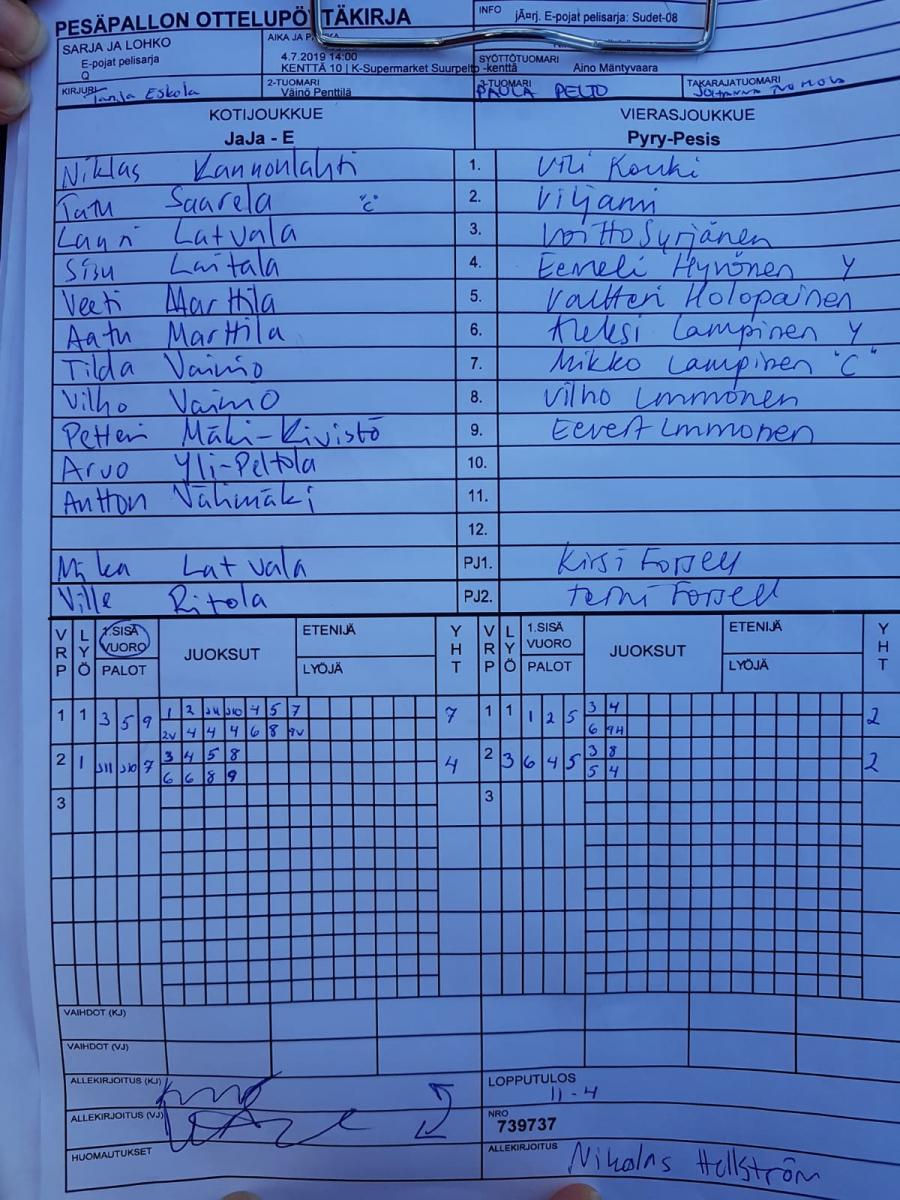 PESÄPALLON OTTELUPÖYTÄKIRJA
INFO jÃ¤rj. E-pojat pelisarja: Sudet-08
SARJA JA LOHKO
E-pojat pelisarja
Q
AIKA JA
4.7.2019 14:00
KENTTÄ 10 | K-Supermarket Suurpelto -kenttä
SYÖTTÖTUOMARI
Aino Mäntyvaara
KIRJURI Tanja Eskola
2-TUOMARI
Väinö Penttilä
3-TUOMARI
PAULA PELTO
TAKARAJATUOMARI
KOTIJOUKKUE
JaJa - E
VIERASJOUKKUE
Pyry-Pesis
Niklas Kannonlahti 1. Vili Kouki
Tatu Saarela "C" 2. Viljami
Lauri Latvala 3. Voitto Syrjänen
Sisu Laitala 4. Eemeli Hyvönen Y
Veeti Marttila 5. Valtteri Holopainen
Aatu Marttila 6. Aleksi Lampinen Y
Tilda Vainio 7. Mikko Lampinen "C"
Vilho Vainio 8. Vilho Immonen
Petteri Mäki-Kivistö 9. Eevert Immonen
Arvo Yli-Peltola 10.
Antton Välimäki 11.
12.
Mika Latvala PJ1. Kirsi Forsell
Ville Ritola PJ2. Forsell
VRP LYÖ 1.SISÄ VUORO PALOT JUOKSUT ETENIJÄ LYÖJÄ YHT VRP LYÖ 1.SISÄ VUORO PALOT JUOKSUT ETENIJÄ LYÖJÄ YHT
1 1 3 5 9 1 2 J11 J10 4 5 7 7 1 1 1 2 5 3 4 2
2V 4 4 4 6 8 9V 6 9H
2 1 J11 J10 7 3 4 5 8 4 2 3 6 4 5 3 8 2
6 6 8 9 5 4
3 3
VAIHDOT (KJ)
VAIHDOT (VJ)
ALLEKIRJOITUS (KJ)
LOPPUTULOS
11-4
ALLEKIRJOITUS (VJ)
NRO
739737
HUOMAUTUKSET
ALLEKIRJOITUS Nikolas Hellström